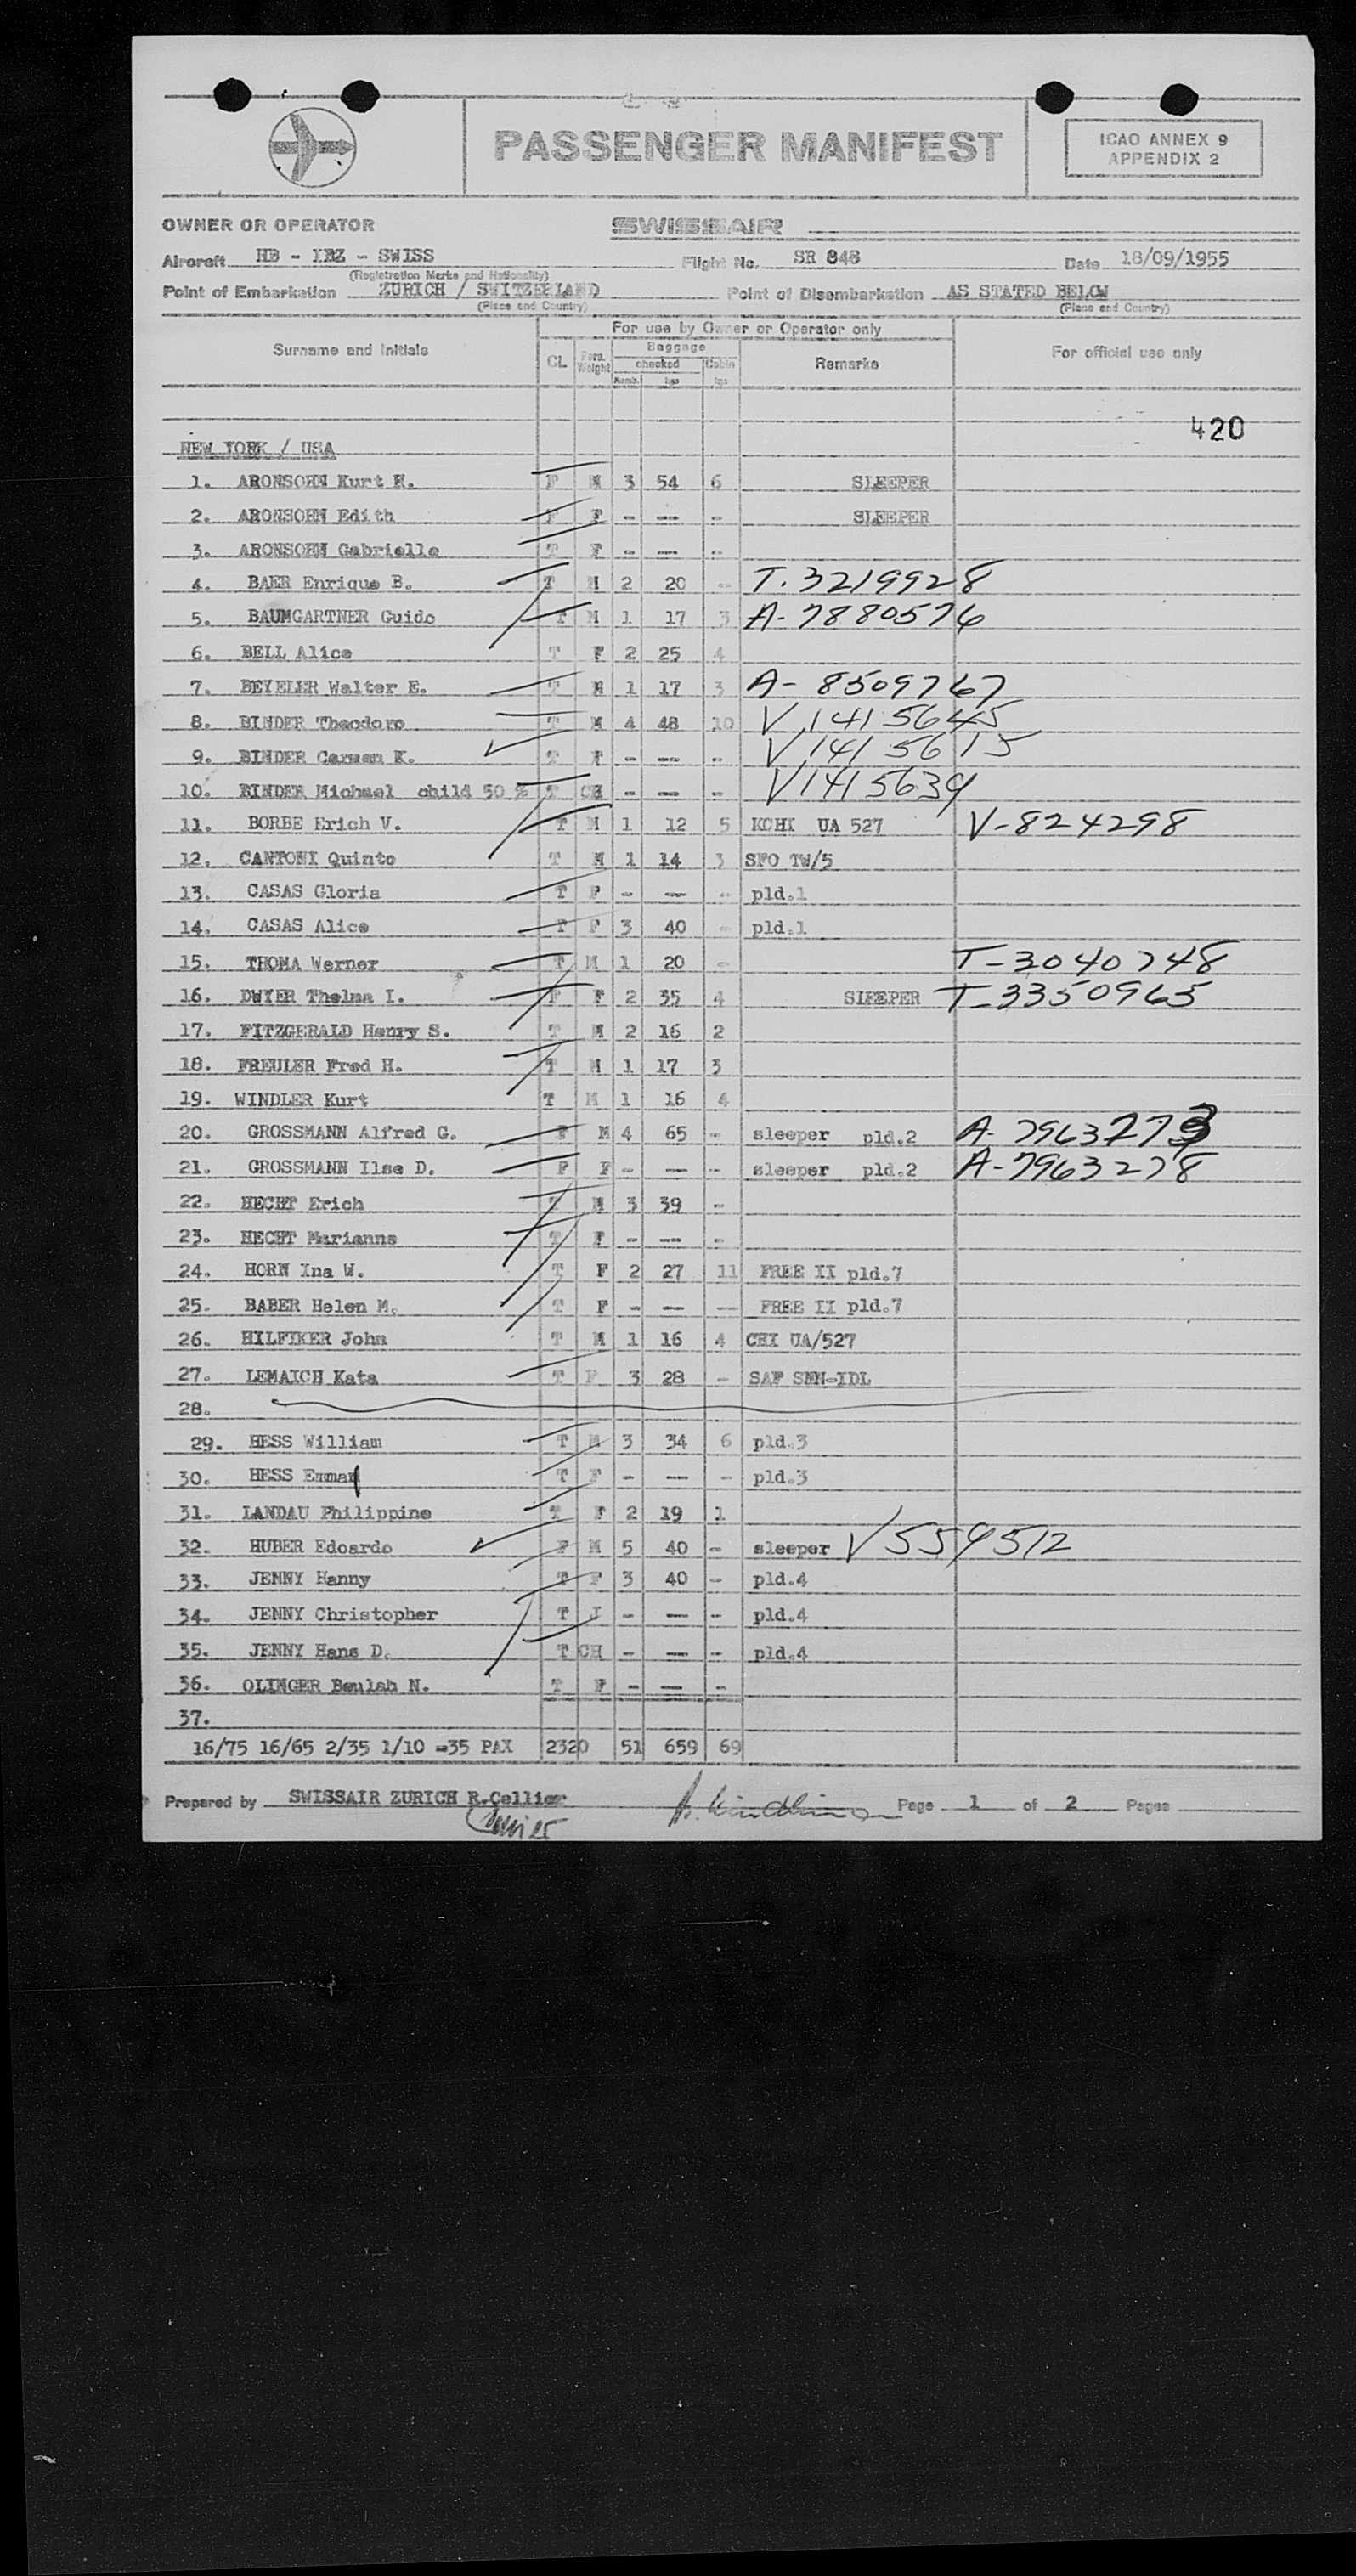 PASSENGER MANIFEST
ICAO ANNEX 9
APPENDIX 2
OWNER OR OPERATOR SWISSAIR
Aircraft HB - IBZ - SWISS Flight No. SR 848 Date 18/09/1955
(Registration Marks and Nationality)
Point of Embarkation ZURICH / SWITZERLAND Point of Disembarkation AS STATED BELOW
(Place and Country) (Place and Country)
For use by Owner or Operator only
Surname and Initials CL Pers. Weight Baggage checked Numb. kgs Cabin kgs Remarks For official use only
420
NEW YORK / USA
1. ARONSOHN Kurt H. F M 3 54 6 SLEEPER
2. ARONSOHN Edith F F - --- - SLEEPER
3. ARONSOHN Gabrielle T F - --- -
4. BAER Enrique B. T M 2 20 - T.3219928
5. BAUMGARTNER Guido T M 1 17 3 A-7880576
6. BELL Alice T F 2 25 4
7. BEYELER Walter E. T M 1 17 3 A-8509767
8. BINDER Theodoro T M 4 48 10 V1415645
9. BINDER Carmen K. T F - --- - V1415615
10. BINDER Michael child 50 % T CH - --- - V1415639
11. BORBE Erich V. T M 1 12 5 KCHI UA 527 V-824298
12. CANTONI Quinto T M 1 14 3 SFO TW/5
13. CASAS Gloria T F - --- - pld.1
14. CASAS Alice T F 3 40 - pld.1
15. THOMA Werner T M 1 20 - T-3040748
16. DWYER Thelma I. F F 2 35 4 SLEEPER T-3350965
17. FITZGERALD Henry S. T M 2 16 2
18. FREULER Fred H. T M 1 17 3
19. WINDLER Kurt T M 1 16 4
20. GROSSMANN Alfred G. F M 4 65 - sleeper pld.2 A-7963273
21. GROSSMANN Ilse D. F F - --- - sleeper pld.2 A-7963278
22. HECHT Erich T M 3 39 -
23. HECHT Marianne T F - --- -
24. HORN Ina W. T F 2 27 11 FREE II pld.7
25. BABER Helen M. T F - --- --- FREE II pld.7
26. HILFIKER John T M 1 16 4 CHI UA/527
27. LEMAICH Kata T F 3 28 - SAF SNN-IDL
28.
29. HESS William T M 3 34 6 pld.3
30. HESS Emma T F - --- - pld.3
31. LANDAU Philippine T F 2 19 1
32. HUBER Edoardo F M 5 40 - sleeper V559512
33. JENNY Hanny T F 3 40 - pld.4
34. JENNY Christopher T I - --- - pld.4
35. JENNY Hans D. T CH - --- - pld.4
36. OLINGER Beulah N. T F - --- -
37.
16/75 16/65 2/35 1/10 =35 PAX 2320 51 659 69
Prepared by SWISSAIR ZURICH R.Cellier Page 1 of 2 Pages